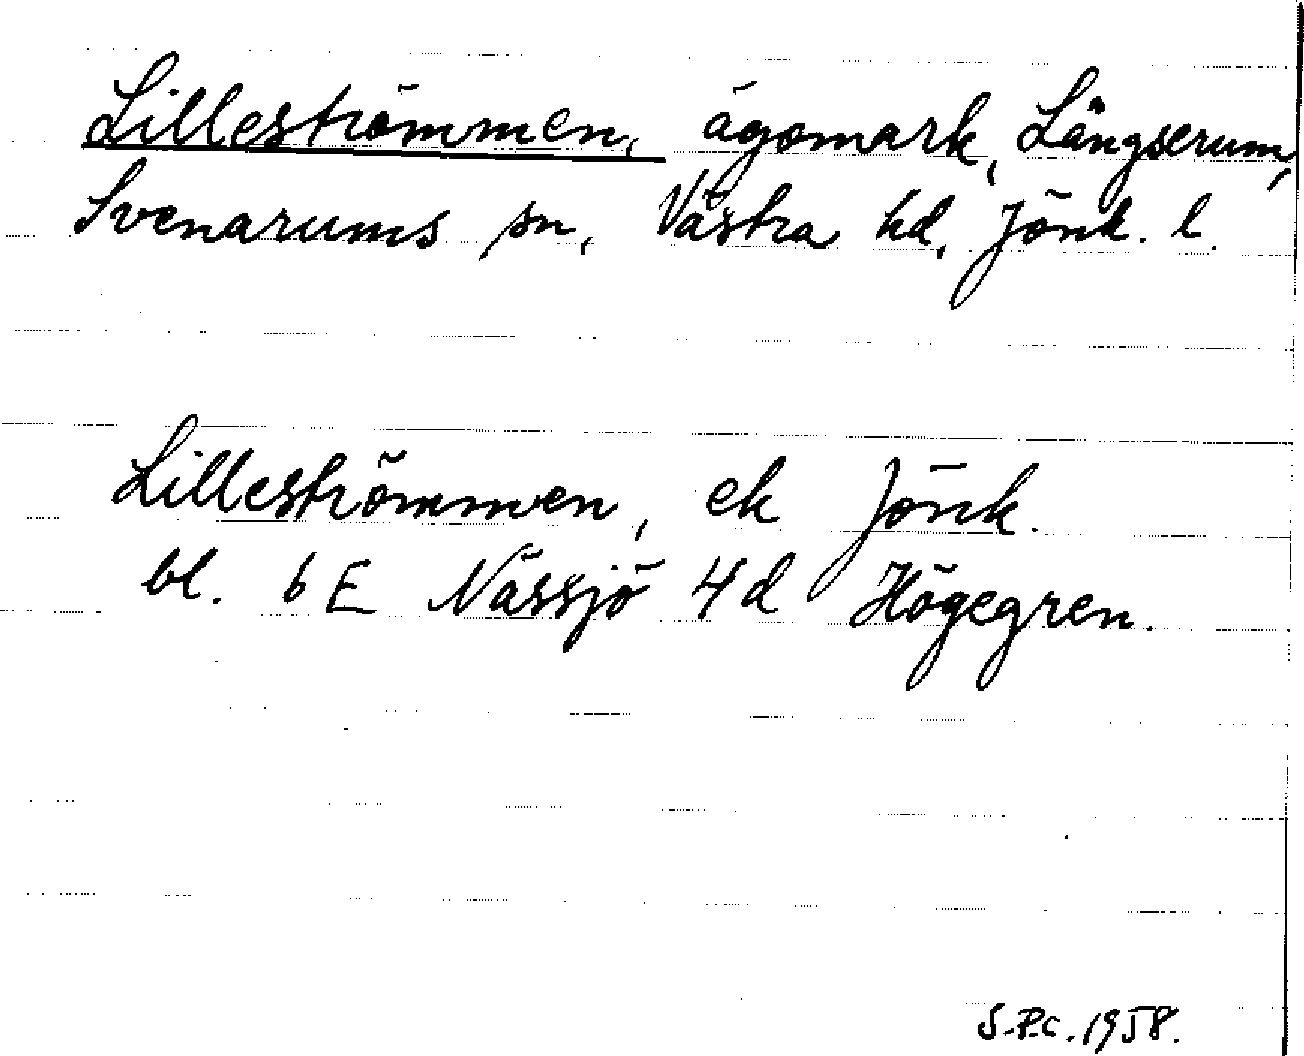 Lilleströmmen, ägomark, Längserum,
Svenarums sn, Västra hd, Jönk. l.
Lilleströmmen, ek Jönk.
bl. 6 E Nässjö 4d Högegren.
S.P.C. 1958.